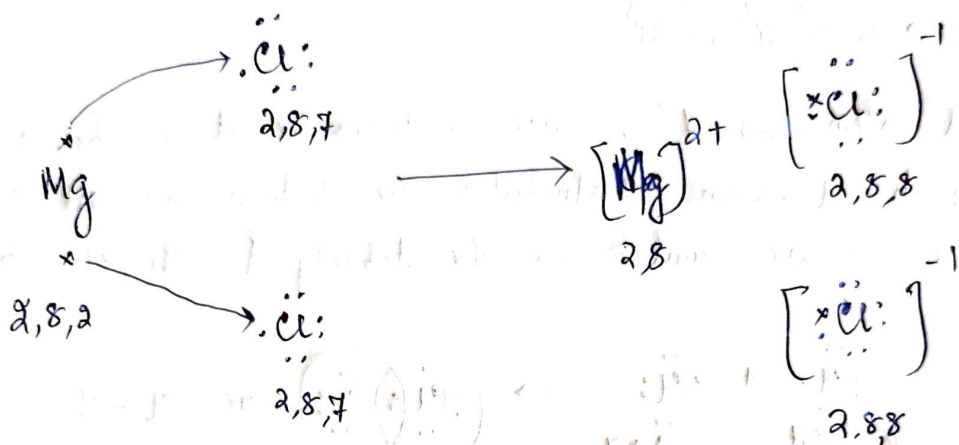 Cl
2,8,7
Mg
2,8,2
Cl
2,8,7
[Mg]2+
2,8
[Cl]-1
2,8,8
[Cl]-1
2,8,8